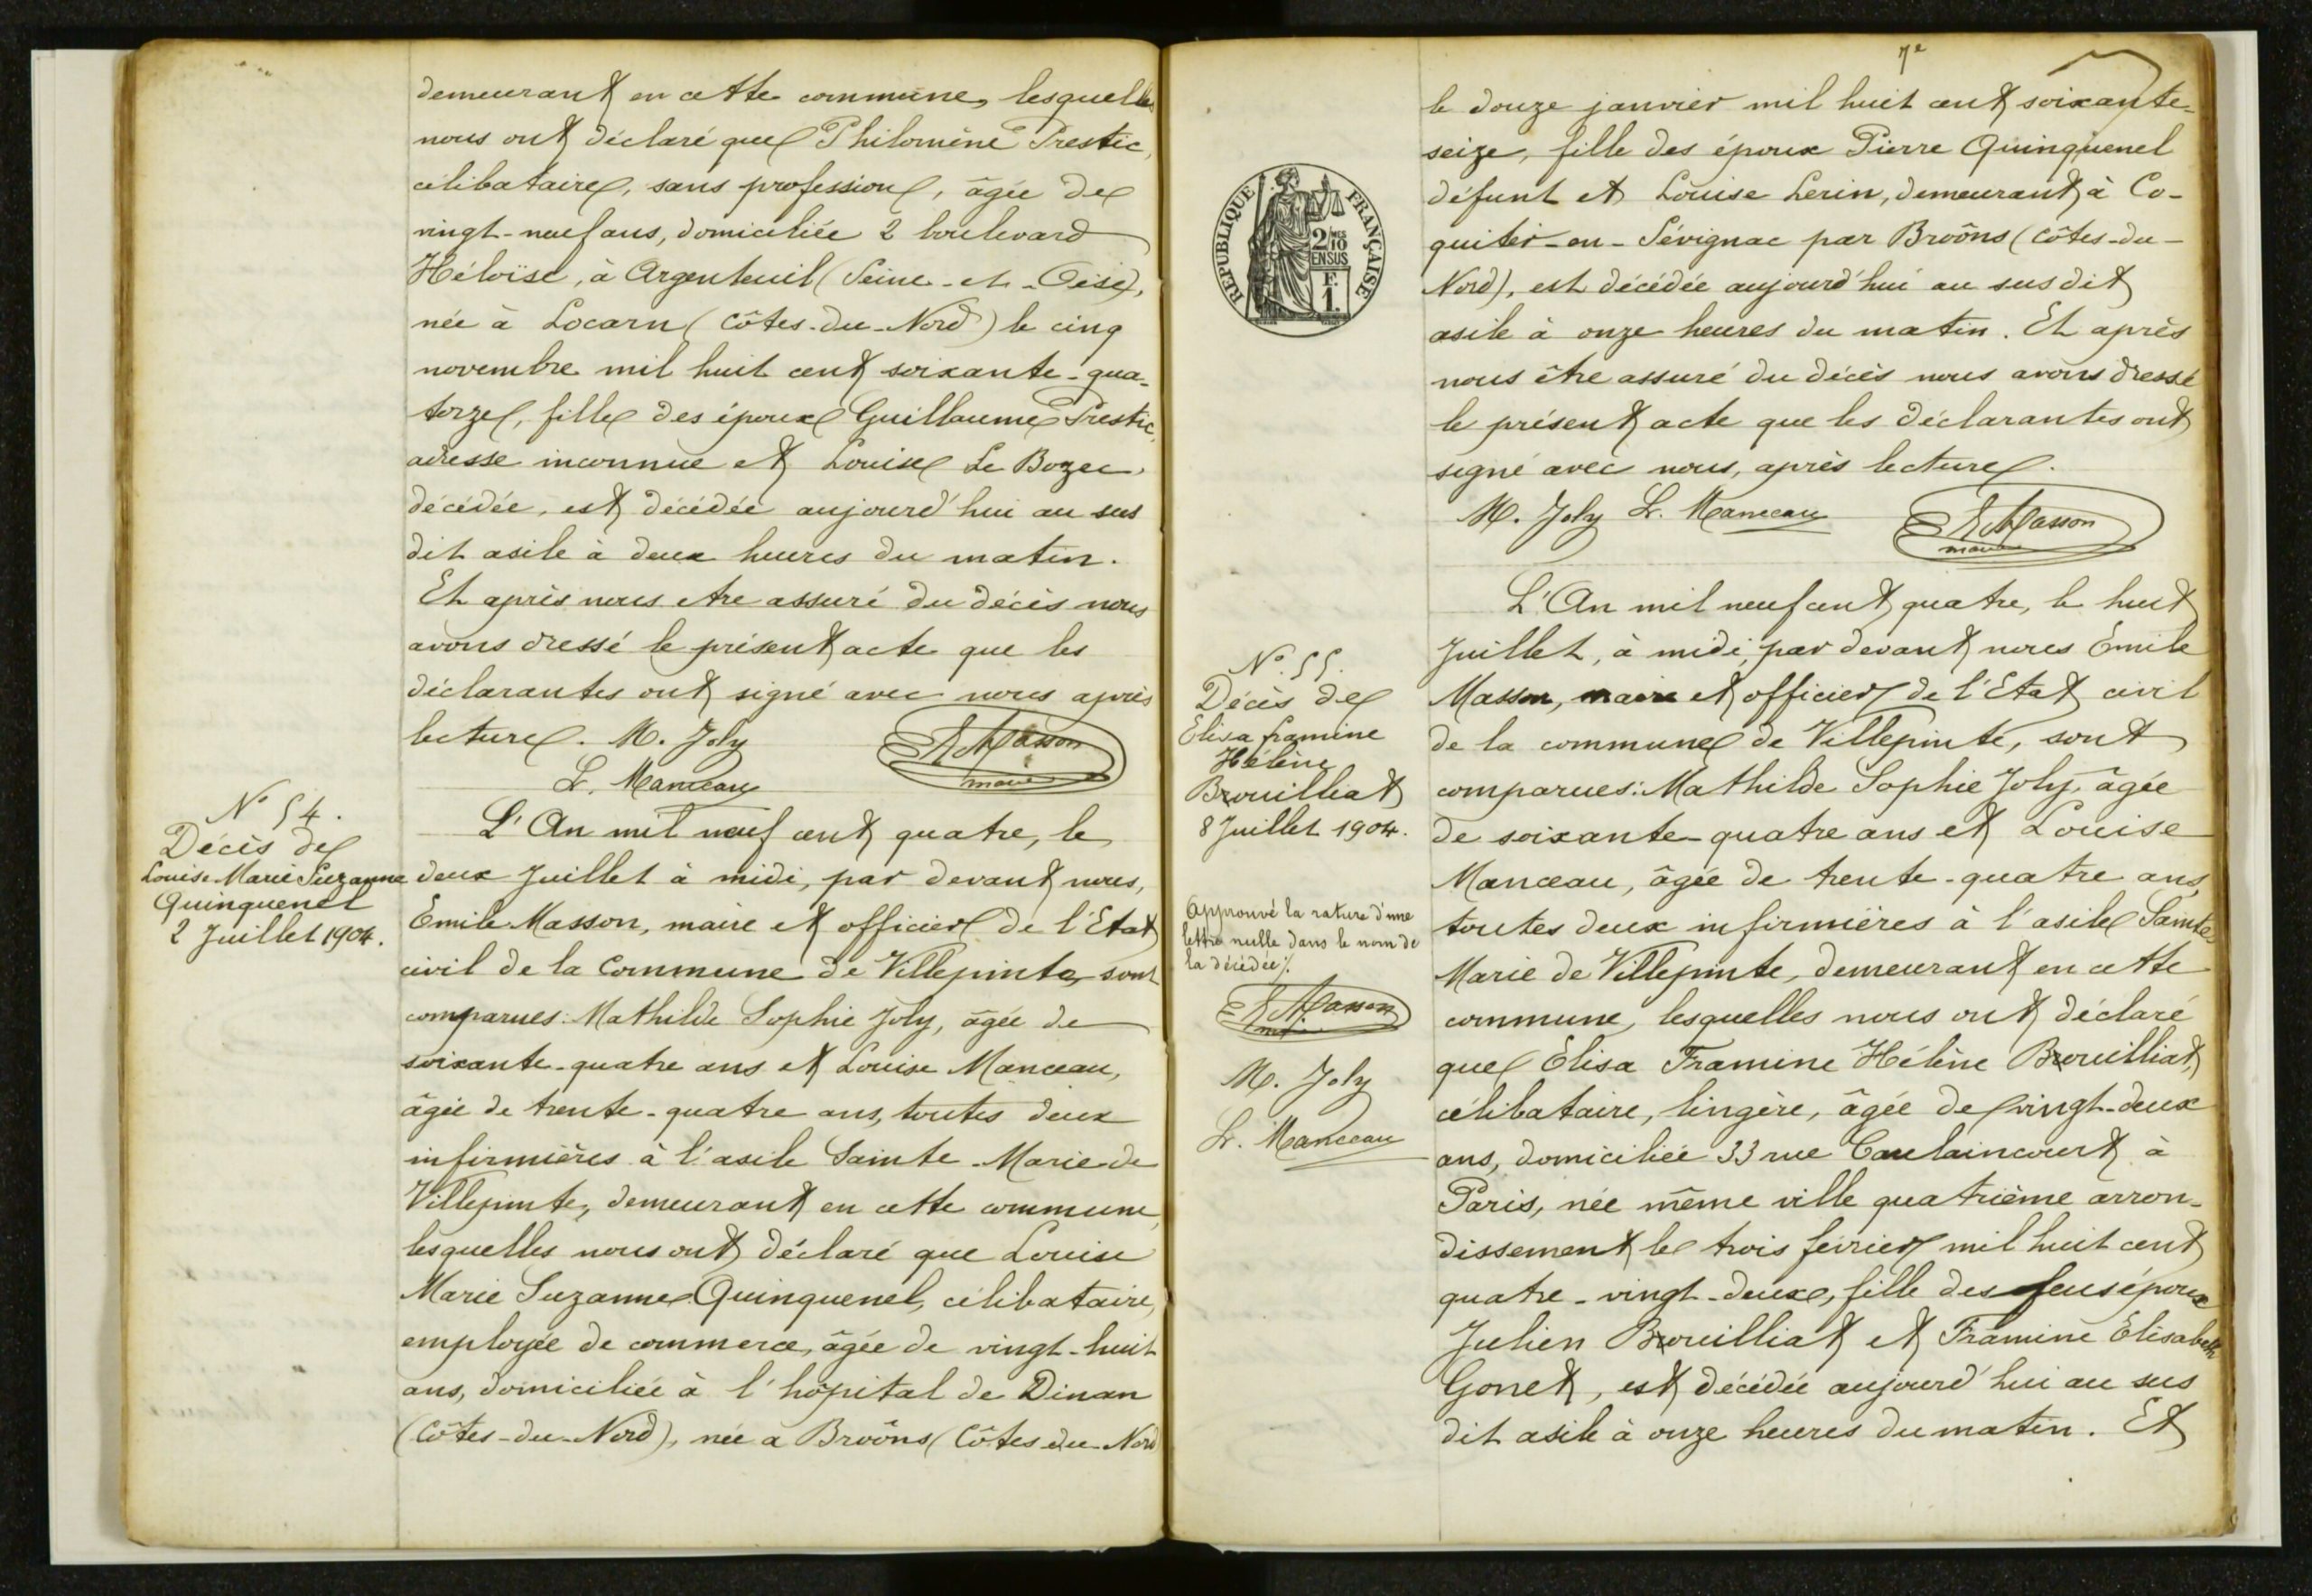 demeurant en cette commune, lesquelles
nous ont déclaré que Philomène Prestic,
célibataire, sans profession, âgée de
vingt-neuf ans, domiciliée 2 boulevard
Héloïse, à Argenteuil (Seine-et-Oise),
née à Locarn (Côtes-du-Nord) le cinq
novembre mil huit cent soixante-qua-
torze, fille des époux Guillaume Prestic,
adresse inconnue et Louise Le Bozec,
décédée, est décédée aujourd'hui au sus
dit asile à deux heures du matin.
Et après nous etre assuré du décès nous
avons dressé le présent acte que les
déclarantes ont signé avec nous après
lecture. M. Joly
E Masson
maire
L. Manceau
N° 54.
Décès de
Louise Marie Suzanne
Quinquenel
2 Juillet 1904.
L'An mil neuf cent quatre, le
deux Juillet à midi, par devant nous,
Emile Masson, maire et officier de l'Etat
civil de la Commune de Villepinte, sont
comparues: Mathilde Sophie Joly, âgée de
soixante-quatre ans et Louise Manceau,
âgée de trente-quatre ans, toutes deux
infirmières à l'asile Sainte-Marie de
Villepinte, demeurant en cette commune,
lesquelles nous ont déclaré que Louise
Marie Suzanne Quinquenel, célibataire,
employée de commerce, âgée de vingt-huit
ans, domiciliée à l'hôpital de Dinan
(Côtes-du-Nord), née a Broôns (Côtes du Nord
7e
RÉPUBLIQUE FRANÇAISE
2/10 MES
EN SUS
F.
1.
le douze janvier mil huit cent soixante-
seize, fille des époux Pierre Quinquenel
défunt et Louise Lerin, demeurant à Co-
quiter-en-Sévignac par Broôns (Côtes-du-
Nord), est décédée aujourd'hui au susdit
asile à onze heures du matin. Et après
nous être assuré du décès nous avons dressé
le présent acte que les déclarantes ont
signé avec nous, après lecture.
M. Joly L. Manceau E Masson
maire
N° 55.
Décès de
Elisa Framine
Hélène
Brouilliat
8 Juillet 1904.
Approuvé la rature d'une
lettre nulle dans le nom de
la décédée /.
E Masson
M. Joly
L. Manceau
L'An mil neuf cent quatre, le huit
Juillet, à midi, par devant nous Emile
Masson, maire et officier de l'Etat civil
de la commune de Villepinte, sont
comparues: Mathilde Sophie Joly, âgée
de soixante-quatre ans et Louise
Manceau, âgée de trente-quatre ans,
toutes deux infirmières à l'asile Sainte
Marie de Villepinte, demeurant en cette
commune, lesquelles nous ont déclaré
que Elisa Framine Hélène Brouilliat,
célibataire, lingère, âgée de vingt-deux
ans, domiciliée 33 rue Caulaincourt à
Paris, née même ville quatrième arron-
dissement le trois février mil huit cent
quatre-vingt-deux, fille des feus époux
Julien Brouilliat et Framine Elisabeth
Gonet, est décédée aujourd'hui au sus
dit asile à onze heures du matin. Et